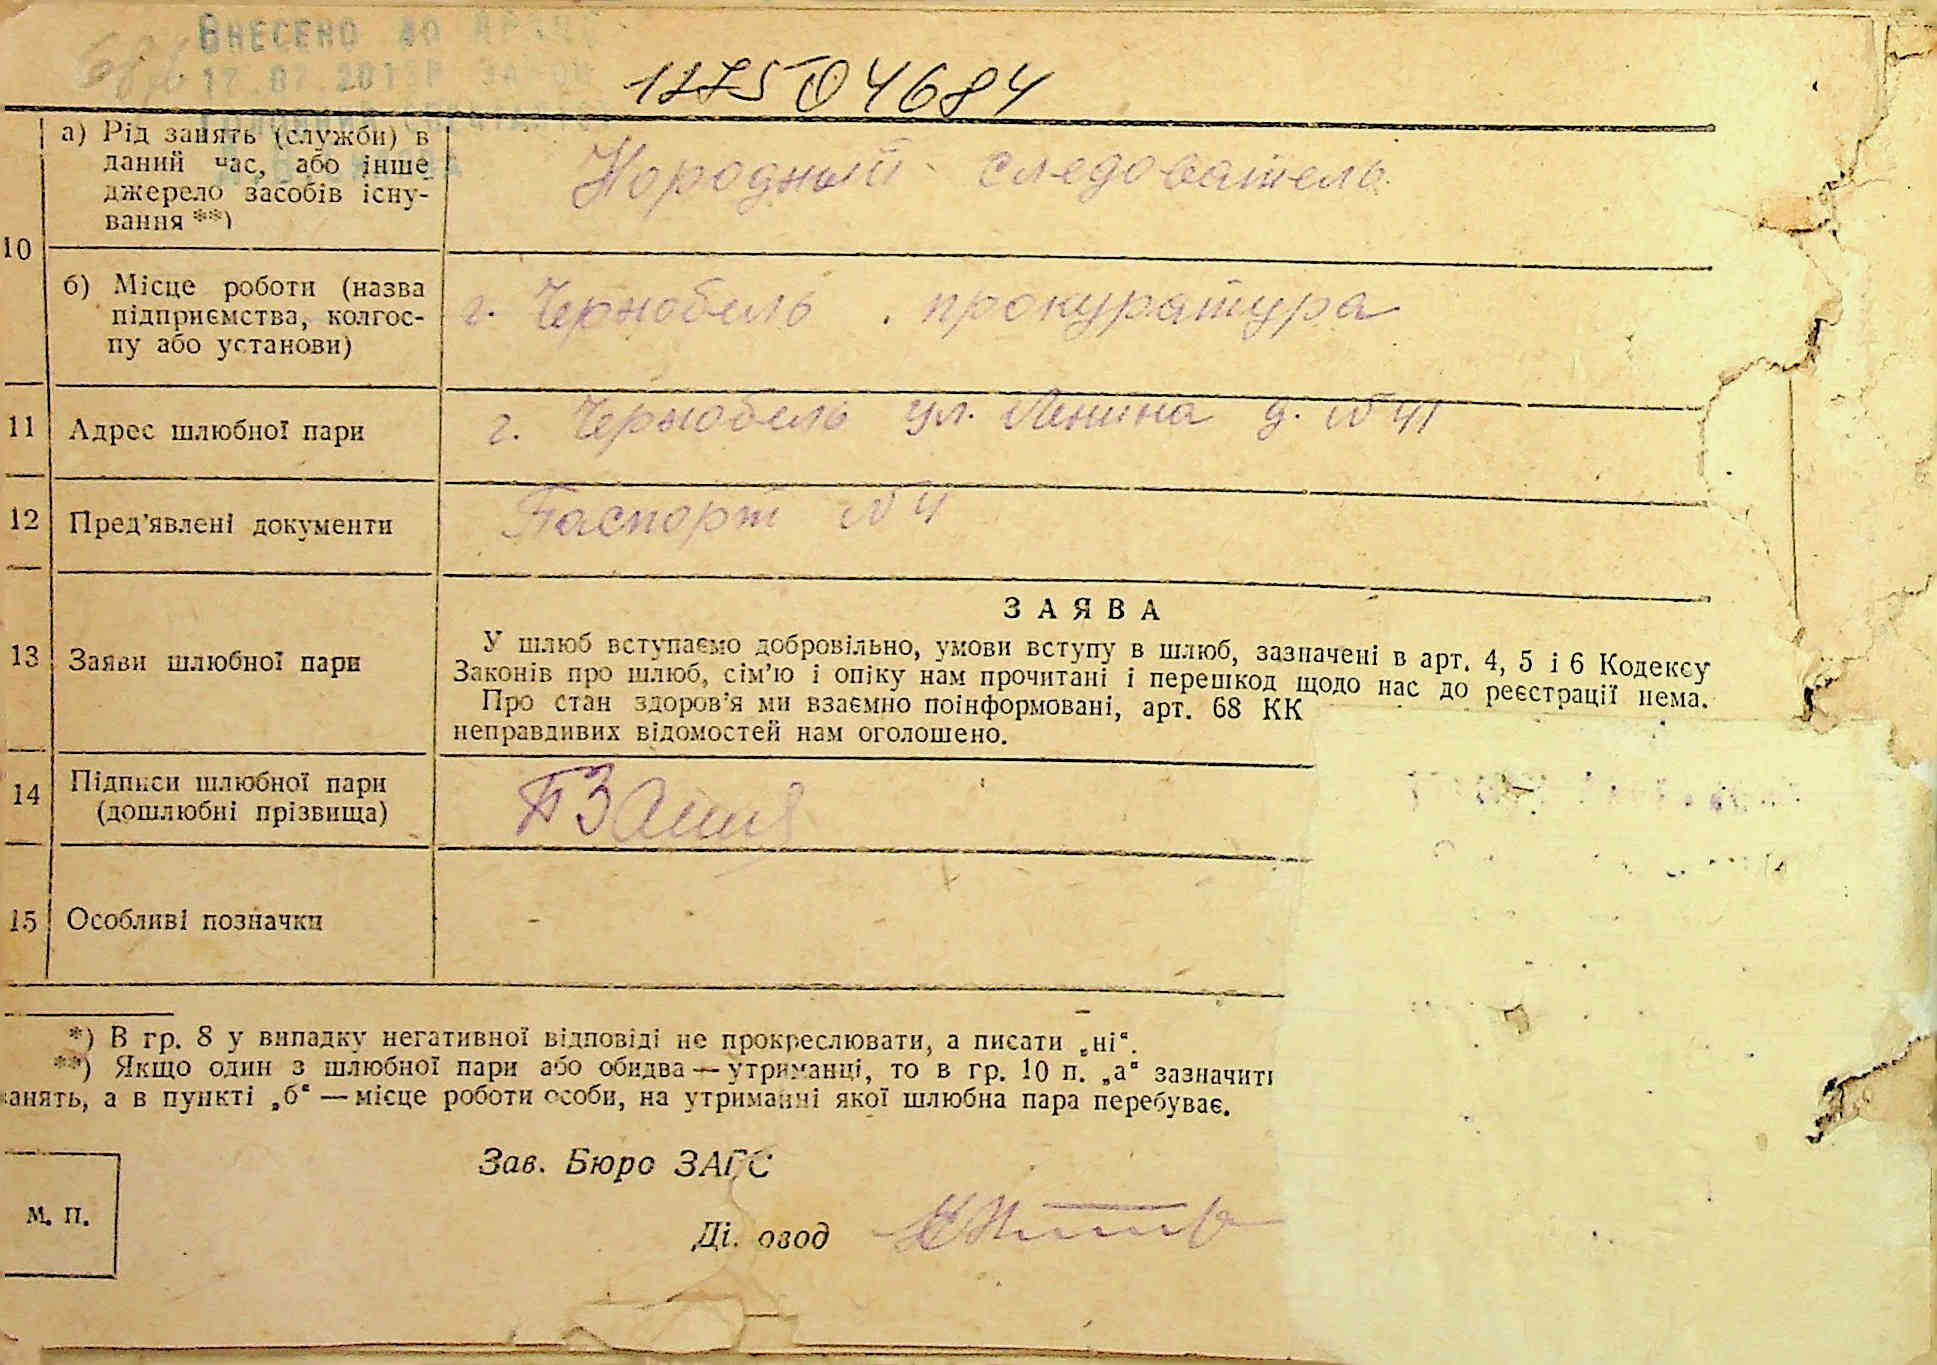 ВНЕСЕНО до
17.07.201
а) Рід занять (служби) в
даний час, або інше
джерело засобів існу-
вання **)
Народный следователь
10
б) Місце роботи (назва
підприємства, колгос-
пу або установи)
г. Чернобель. прокуратура
11 Адрес шлюбної пари г. Чернобель ул. Ленина д. №41
12 Пред’явлені документи Паспорт №4
ЗАЯВА
13 Заяви шлюбної пари
У шлюб вступаємо добровільно, умови вступу в шлюб, зазначені в арт. 4, 5 і 6 Кодексу
Законів про шлюб, сім’ю і опіку нам прочитані і перешкод щодо нас до реєстрації нема.
Про стан здоров’я ми взаємно поінформовані, арт. 68 КК
неправдивих відомостей нам оголошено.
14 Підписи шлюбної пари
(дошлюбні прізвища)
15 Особливі позначки
*) В гр. 8 у випадку негативної відповіді не прокреслювати, а писати „ні“.
**) Якщо один з шлюбної пари або обидва — утриманці, то в гр. 10 п. „а“ зазначит
анять, а в пункті „б“ — місце роботи особи, на утриманні якої шлюбна пара перебуває.
Зав. Бюро ЗАГС
М. П.
Ді. овод